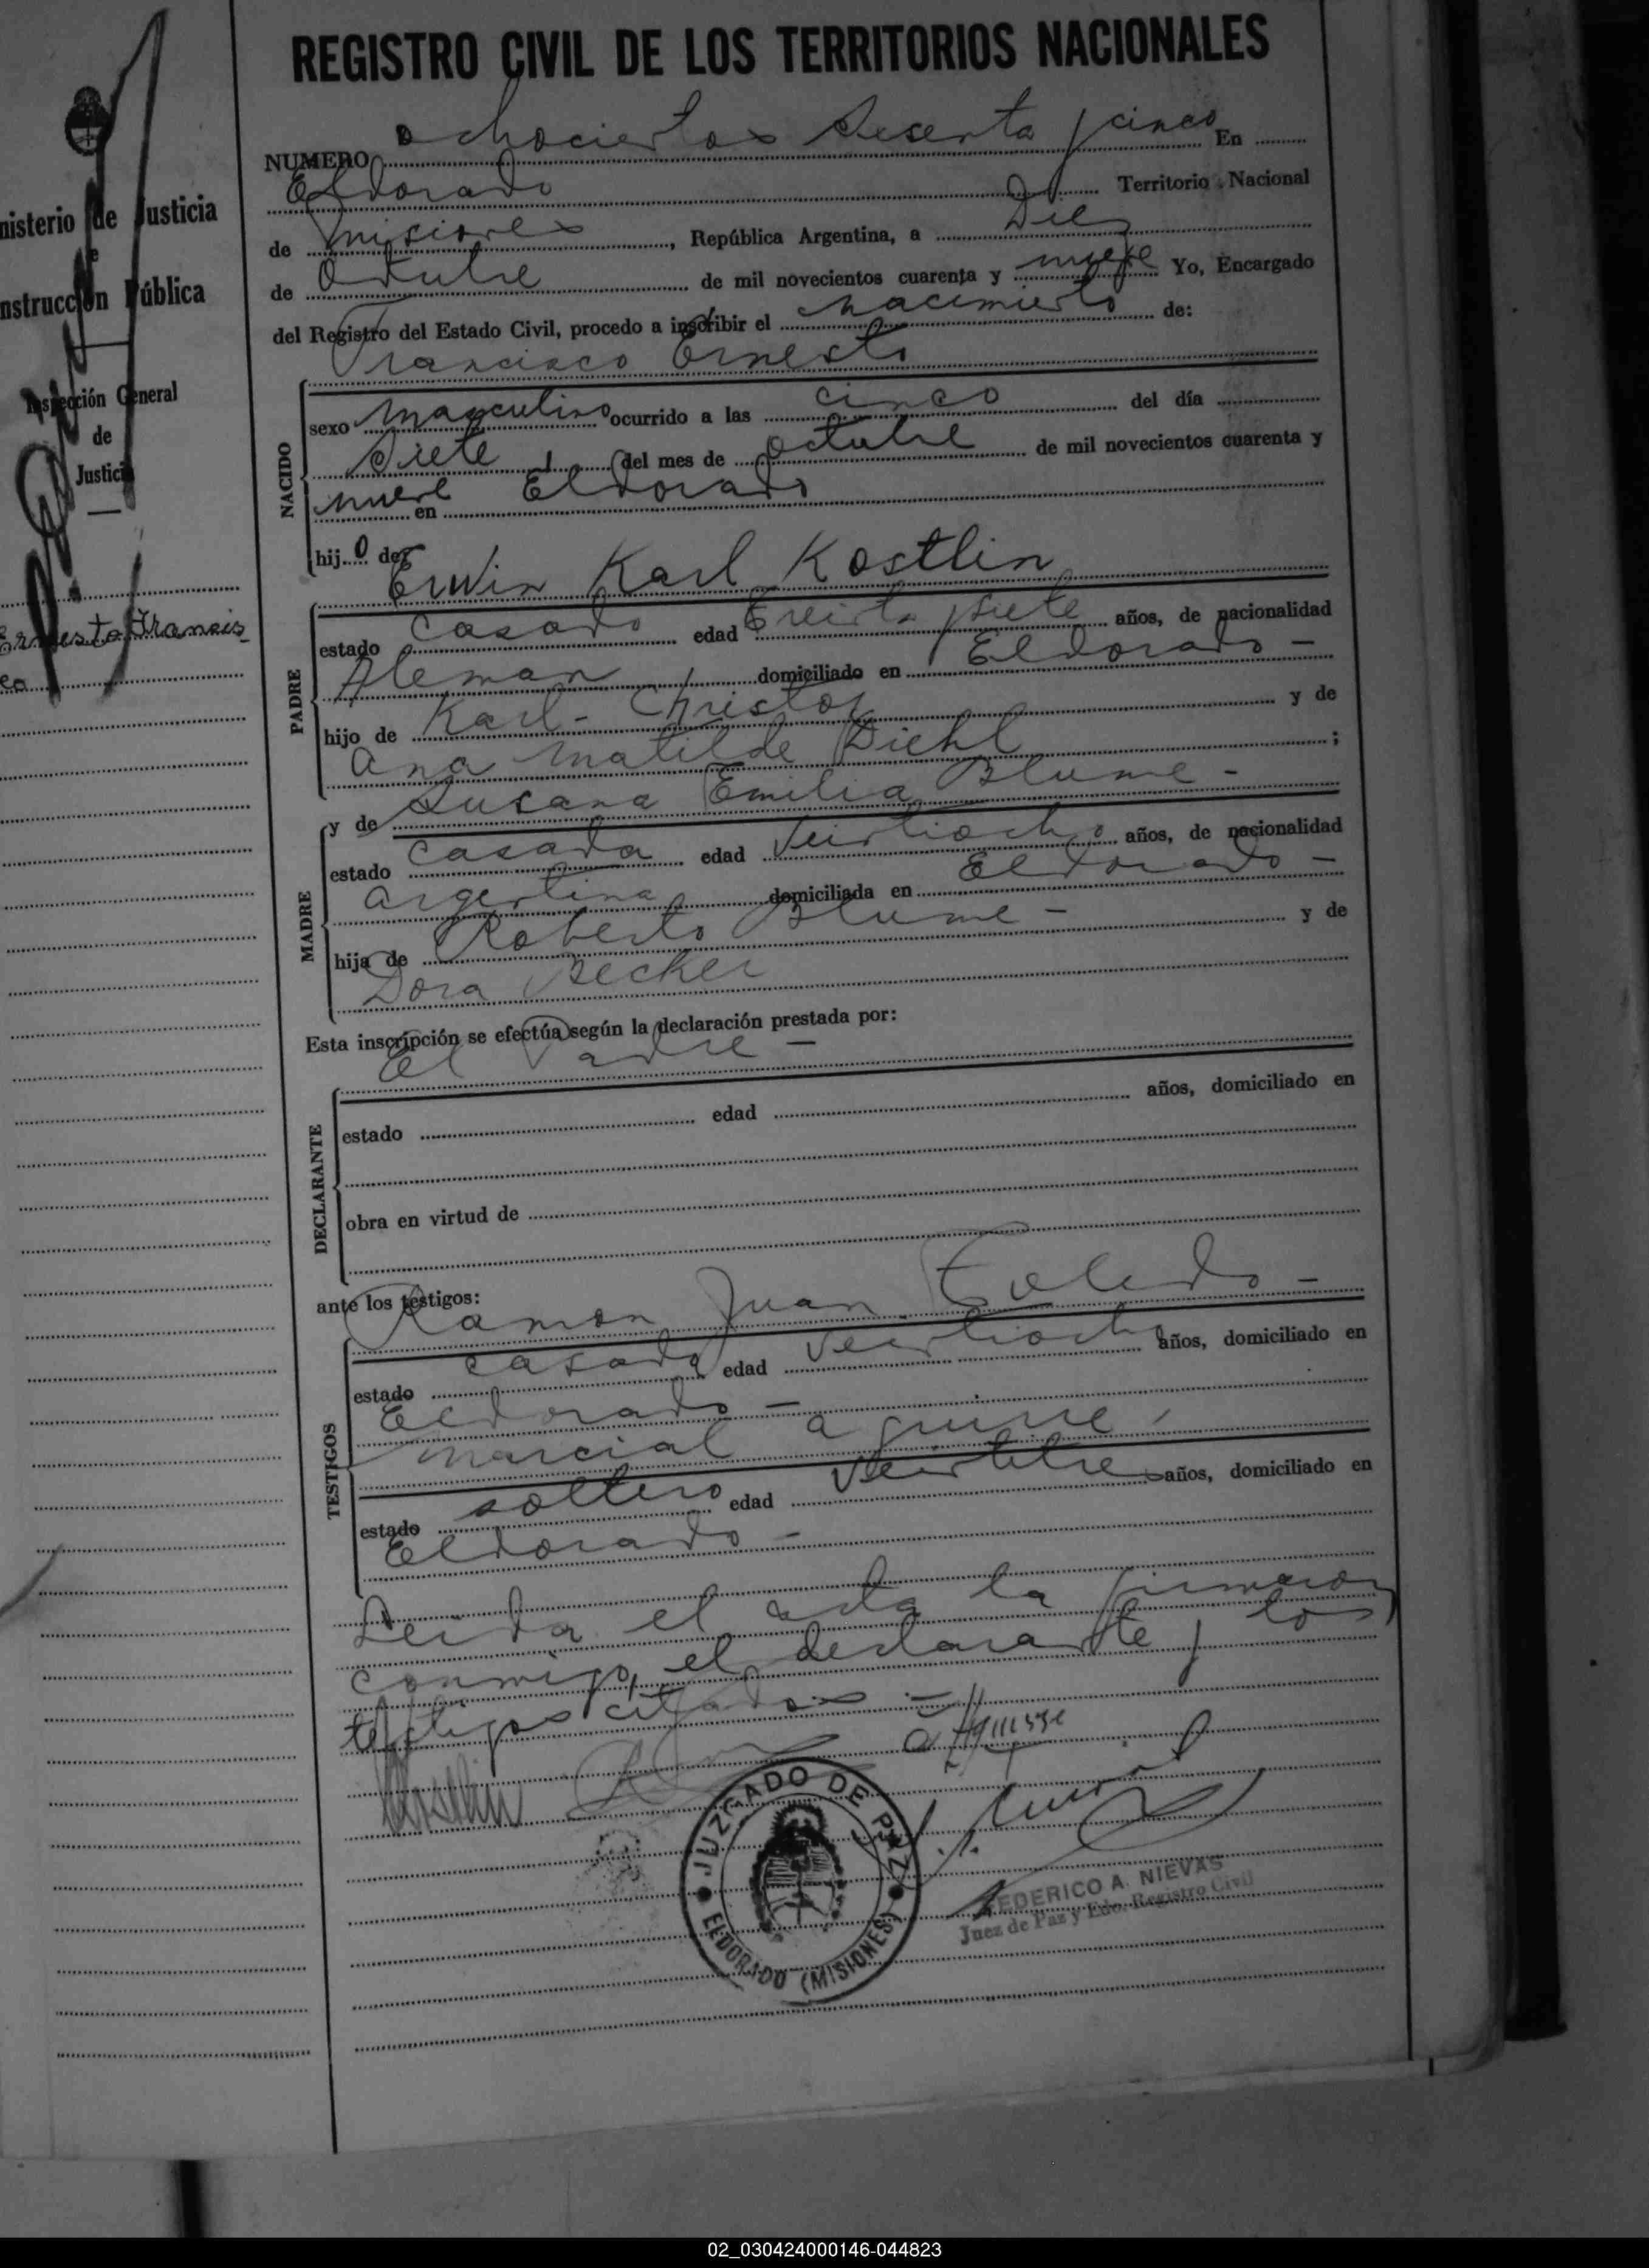 REGISTRO CIVIL DE LOS TERRITORIOS NACIONALES
NUMERO ochocientos sesenta y cinco En
Eldorado Territorio Nacional
de Misiones, República Argentina, a Diez
de Octubre de mil novecientos cuarenta y nueve Yo, Encargado
del Registro del Estado Civil, procedo a inscribir el nacimiento de:
Francisco Ernesto
NACIDO
sexo masculino ocurrido a las cinco del día
siete del mes de octubre de mil novecientos cuarenta y
nueve en Eldorado
hijo de Erwin Karl Kostlin
PADRE
estado casado edad treinta y siete años, de nacionalidad
Aleman domiciliado en Eldorado -
hijo de Karl - Christof y de
Ana Matilde Diehl ;
y de Susana Emilia Blume -
MADRE
estado casada edad veintiocho años, de nacionalidad
argentina domiciliada en Eldorado -
hija de Roberto Blume - y de
Dora Becker
Esta inscripción se efectúa según la declaración prestada por:
El Padre -
DECLARANTE
estado edad años, domiciliado en
obra en virtud de
ante los testigos: Ramon Juan Toledo -
TESTIGOS
estado casado edad veintiocho años, domiciliado en
Eldorado -
Marcial Aguirre
estado soltero edad veintitres años, domiciliado en
Eldorado -
Leida el acta la firmaron
conmigo, el declarante y los
testigos citados -
Kostlin
JUZGADO DE PAZ
ELDORADO (MISIONES)
FEDERICO A. NIEVAS
Juez de Paz y Edo. Registro Civil
nisterio de Justicia
e
nstrucción Pública
Inspección General
de
Justicia
Ernesto Francis
co
02_030424000146-044823